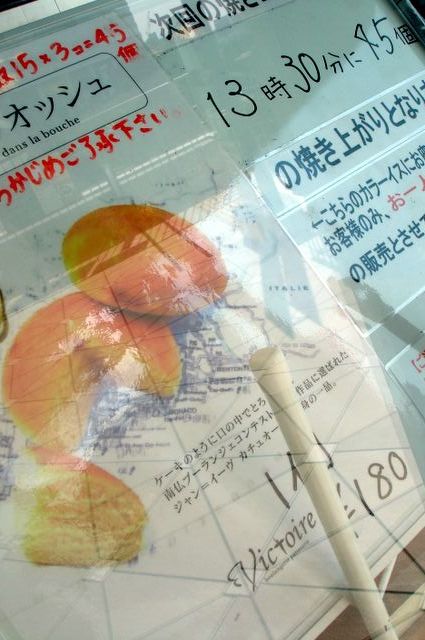 次回の焼き
13時30分に45個
の焼き上がりとなりま
←こちらのカラーイスにお座
お客様のみ、お一人
の販売とさせて
15×3コ=45
個
オッシュ
dans la bouche
らかじめご了承下さい。
ITALIE
MONACO
ケーキのように口の中でとろ
南仏ブーランジェコンテスト 作品に選ばれた
ジャン=イーヴ カチュオー 身の一品。
Victoire
¥180